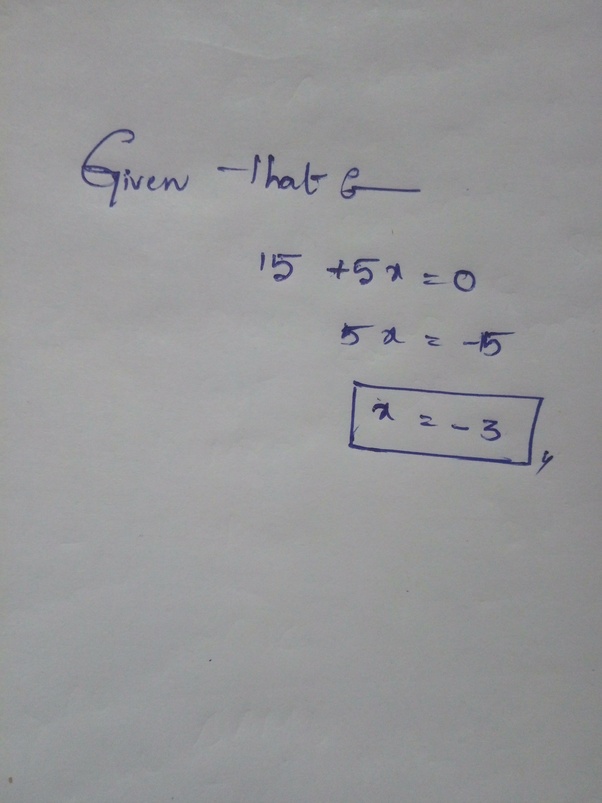 Given that :-
15 + 5x = 0
5x = -15
x = -3